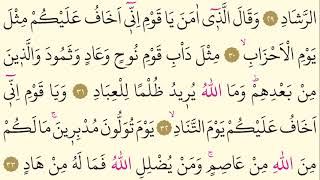 الرَّشَادِ ﴿٢٩﴾ وَقَالَ الَّذٖٓى اٰمَنَ يَا قَوْمِ اِنّٖٓى اَخَافُ عَلَيْكُمْ مِثْلَ
يَوْمِ الْاَحْزَابِۙ ﴿٣٠﴾ مِثْلَ دَاْبِ قَوْمِ نُوحٍ وَعَادٍ وَثَمُودَ وَالَّذٖينَ
مِنْ بَعْدِهِمْۜ وَمَا اللّٰهُ يُرٖيدُ ظُلْمًا لِلْعِبَادِ ﴿٣١﴾ وَيَا قَوْمِ اِنّٖٓى
اَخَافُ عَلَيْكُمْ يَوْمَ التَّنَادِۙ ﴿٣٢﴾ يَوْمَ تُوَلُّونَ مُدْبِرٖينَۚ مَا لَكُمْ
مِنَ اللّٰهِ مِنْ عَاصِمٍۚ وَمَنْ يُضْلِلِ اللّٰهُ فَمَا لَهُ مِنْ هَادٍ ﴿٣٣﴾